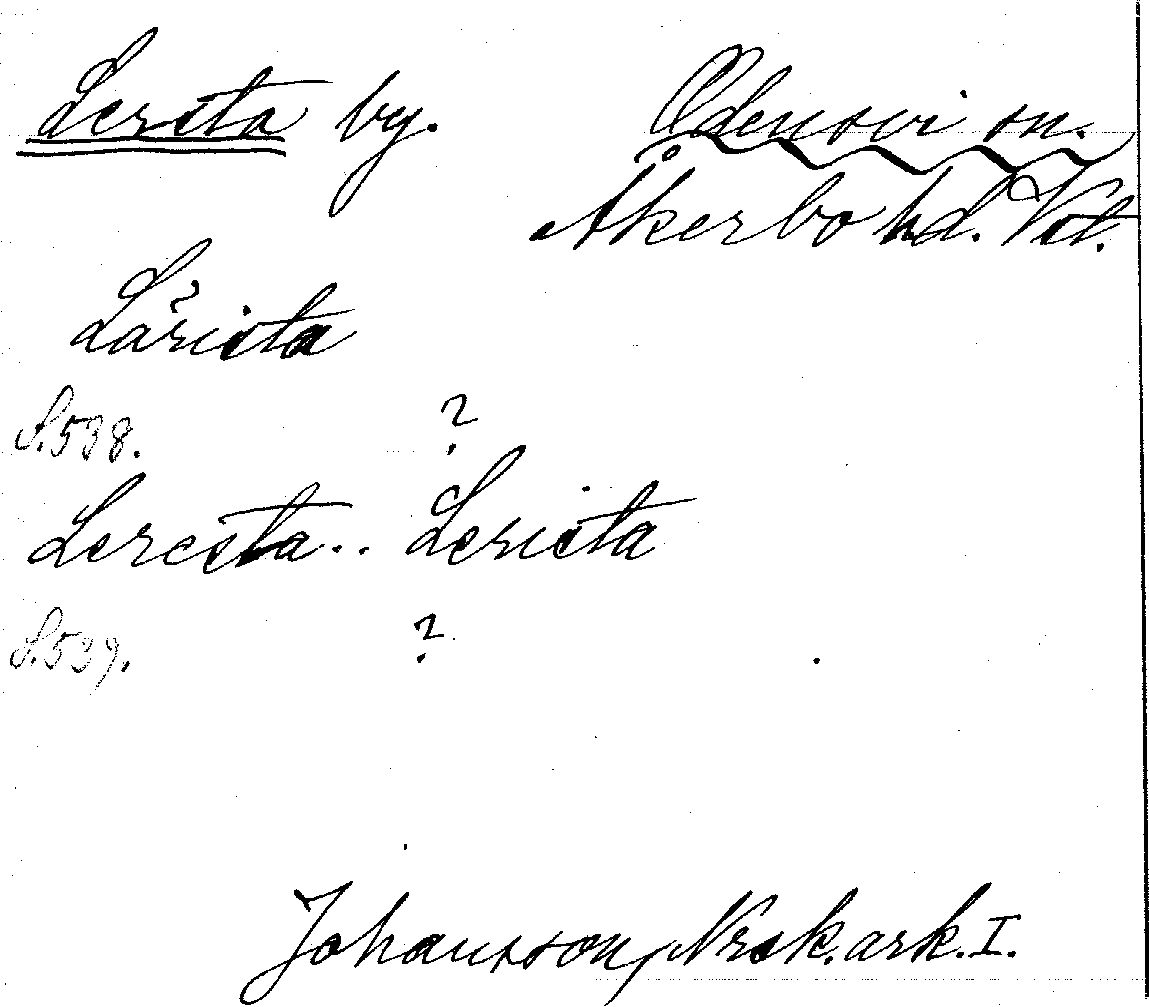 Lersta by. Odensvi sn.
Åkerbo hd. Vst.
Lärista
S.538. ?
Leresta.. Lerista
S.539. ?
Johansson, Nrsk. ark. I.